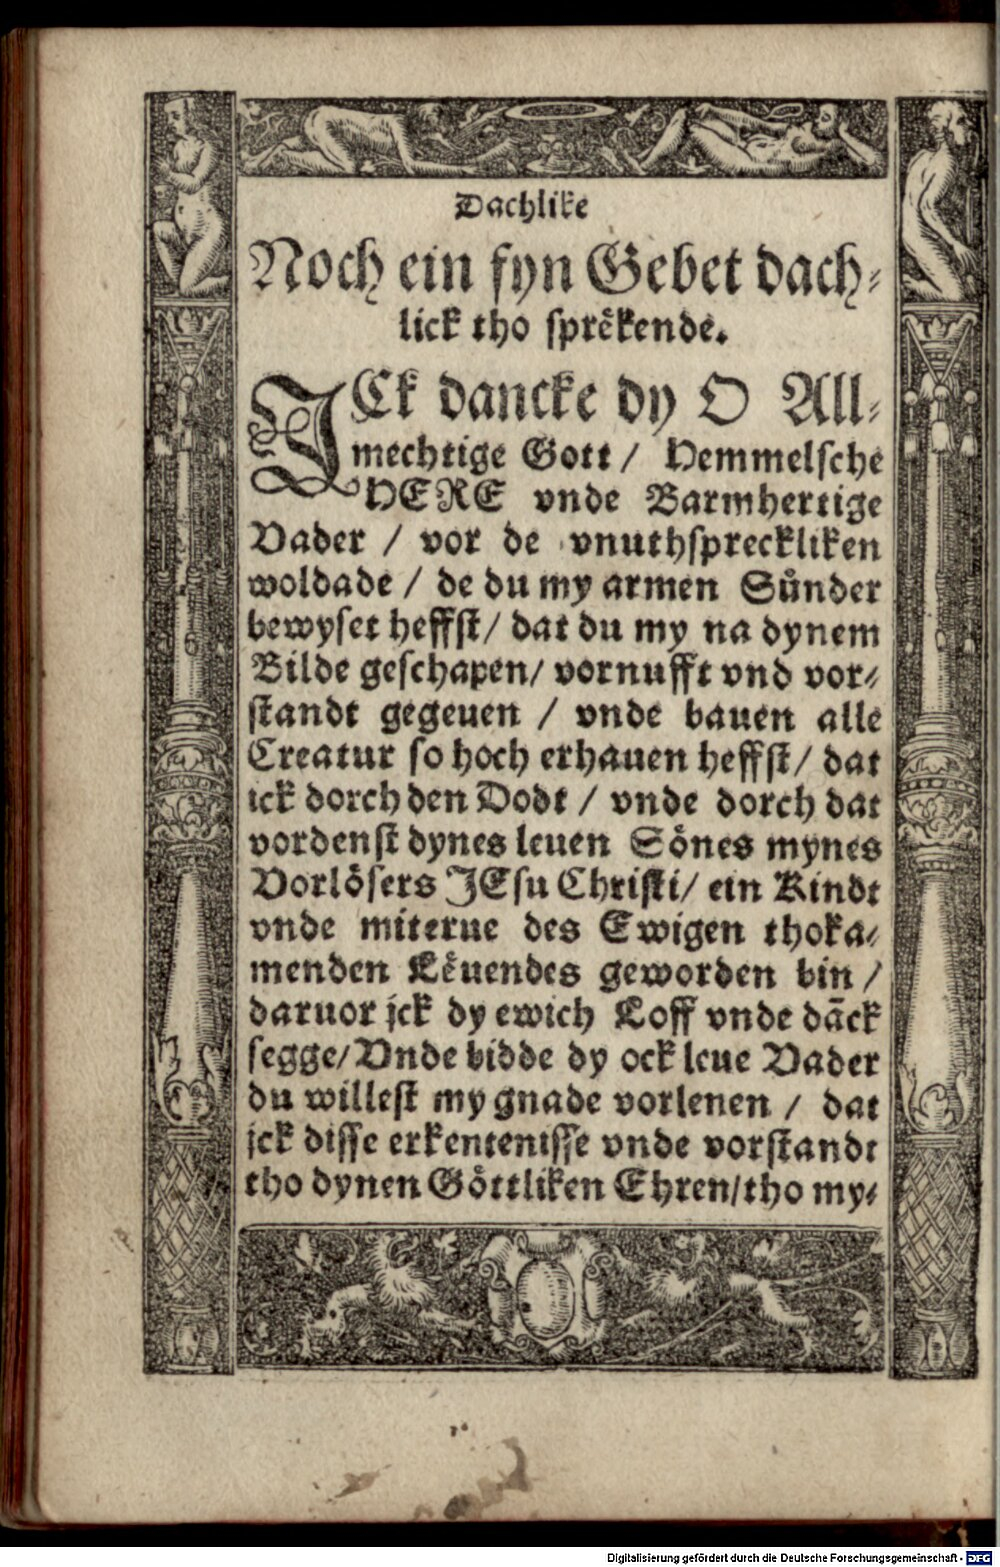 Dachlike
Noch ein fyn Gebet dach⸗
lick tho sprëkende.
ICk dancke dy O All⸗
mechtige Gott / Hemmelsche
HERE vnde Barmhertige
Vader / vor de vnuthspreckliken
woldade / de du my armen Sůnder
bewyset heffst / dat du my na dynem
Bilde geschapen / vornufft vnd vor⸗
standt gegeuen / vnde bauen alle
Creatur so hoch erhauen heffst / dat
ick dorch den Dodt / vnde dorch dat
vordenst dynes leuen Sönes mynes
Vorlösers JEsu Christi / ein Kindt
vnde miterue des Ewigen thoka⸗
menden Lëuendes geworden bin /
daruor jck dy ewich Loff vnde dāck
segge / Vnde bidde dy ock leue Vader
du willest my gnade vorlenen / dat
jck disse erkentenisse vnde vorstandt
tho dynen Göttliken Ehren / tho my⸗
Digitalisierung gefördert durch die Deutsche Forschungsgemeinschaft - DFG